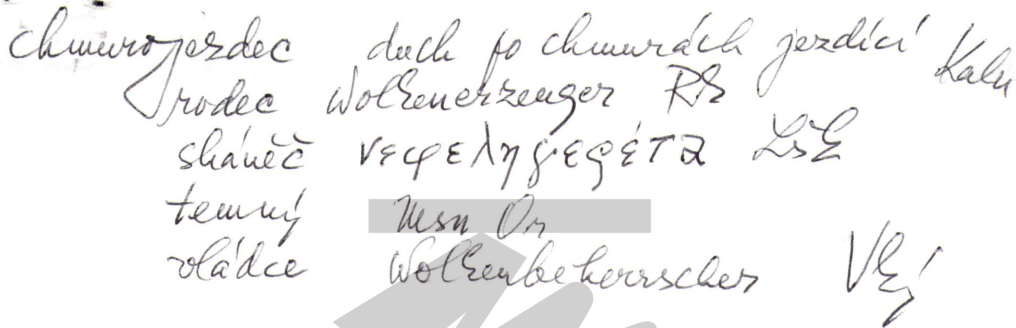 chmurojezdec duch po chmurách jezdící Kalu
rodec Wolkenerzeuger RŠ
sháněč νεφεληγερέτα LšE
temný Msn Or
vládce Wolkenbeherrscher